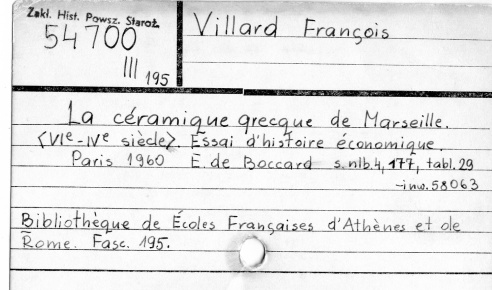 Zakł. Hist. Powsz. Staroż.
54 700
III 195
Villard François
La céramique grecque de Marseille.
<VIe-IVe siècle>. Essai d'histoire économique.
Paris 1960 E. de Boccard s. nlb. 4, 177, tabl. 29
inw. 58063
Bibliothèque de Écoles Françaises d'Athènes et de
Rome. Fasc. 195.